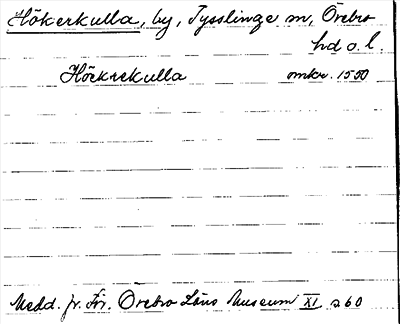 Hökerkulla, by, Tysslinge sn, Örebro
hd o. l.
Höckrekulla omkr. 1550
Medd. fr. För. Örebro Läns Museum XI s 60